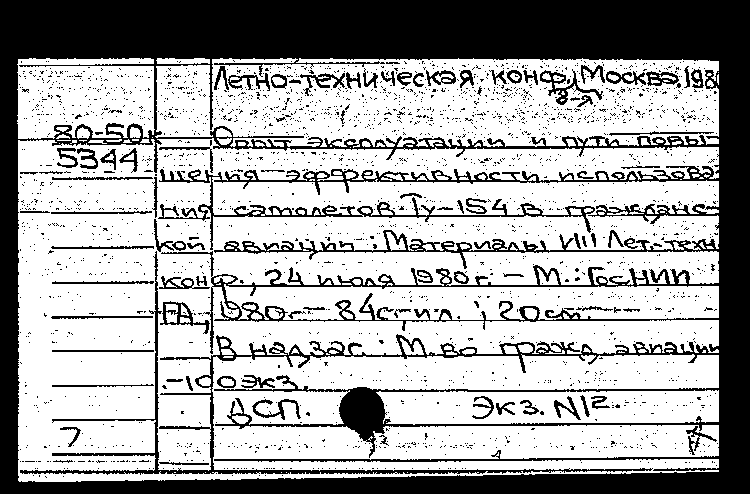 Летно-техническая конф., Москва, 1980
3-я
80-50к
5344
Опыт эксплуатации и пути повы-
шения эффективности использова-
ния самолетов Ту-154 в гражданс-
кой авиации : Материалы III Лет.-техн.
конф., 24 июля 1980г. - М. : ГосНИИ
ГА, 1980.- 84с. ил. ; 20см.
В надзаг. : М-во гражд. авиации
.-100экз.
ДСП. Экз. N12.
7